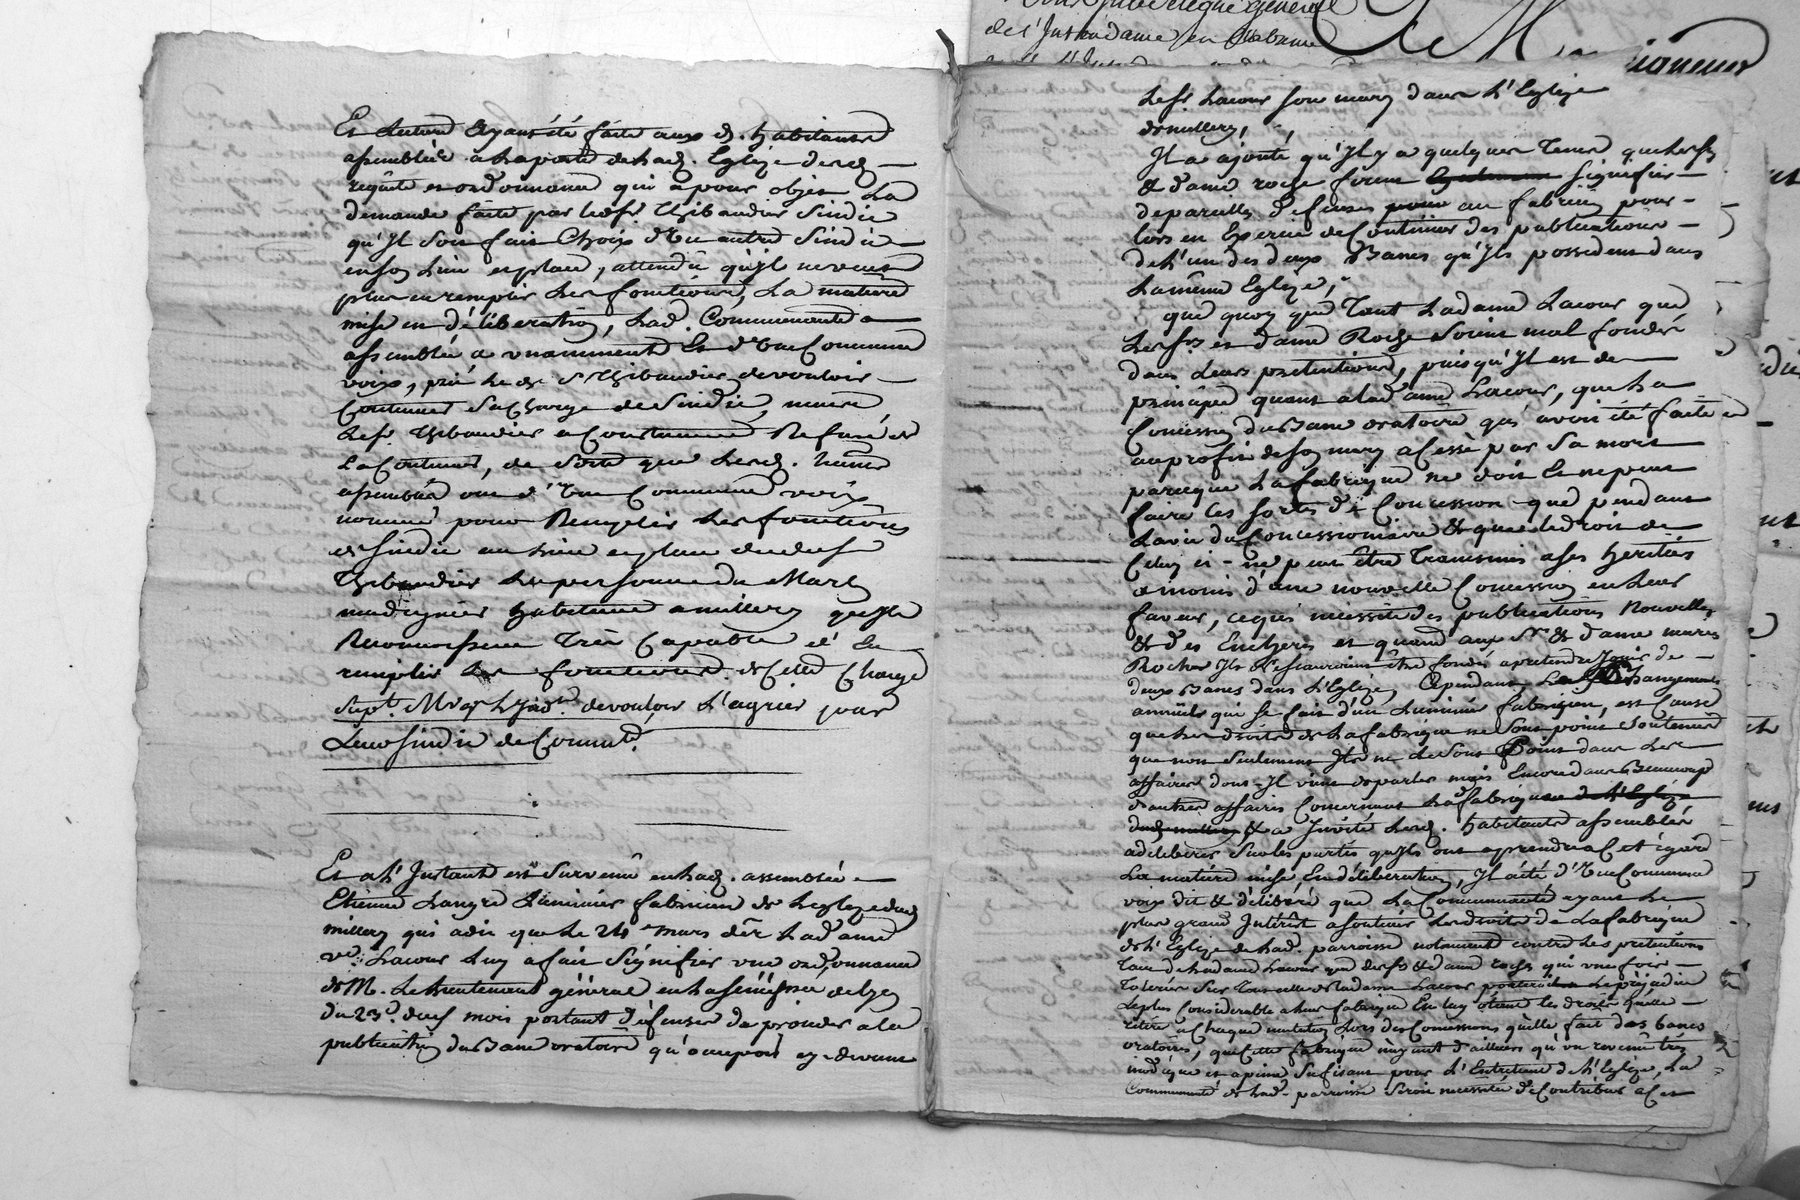 Et Lecture Ayant été faite aux d. habitants
assemblés a la porte de lad. Eglize desd.
requête et ordonnance qui a pour objet La
demande faite par led sr. Thibaudier Sindic
qu'Jl soit fait Choix d'Un autre Sindic
en son Lieu et place, attendu qu'Jl ne veut
plus en remplir Les fonctions, La matiere
mise en déliberation, Lad. Communauté
assemblée a unanimement Et d'Une Commune
voix, prié Le d. sr Thibaudier de vouloir
Continuer Sa Charge de Sindic,
Le sr. Thibaudier a Constament Refusé de
La Continuer, de Sorte que Lesd.
assemblés ont d'Une Commune voix
nommé pour Remplir Les fonctions
de Sindic au Lieu et place dud sr
Thibaudier La personne de Marc
habitant a millery qu'Jls
Reconnoissent Très Capable de
remplir Les fonctions de Cette Charge
Supt. Mrgr L'Jntt. de vouloir L'agréer pour
Leur Sindic de Communté.
Et a L'Jnstant est Survenu en Lad. assemblée
Etienne Langre Luminier fabricien de Leglize dud
millery qui a dit que Le 24e mars der. La d ame
ve. Lacour Luy a fait Signifier une ordonnance
de M. Le Lieutenant général en La Sénéchée de Lyon
du 23e. dud mois portant défenses de proceder a la
publication du Banc oratoire qu'occupoit cy-devant
Le sr. Lacour son mary dans L'Eglize
de millery,
Jl a ajouté qu'Jl y a quelques Tems que Les sr
& dame roche firent Signifier
de pareilles défenses au fabricien pour
lors en Exercice de Continuer Les publications
de L'un des deux Bancs qu'Jls possedent dans
La même Eglize,
que quoy que Tant La dame Lacour que
Les srs. et dame Roche Soient mal fondés
dans Leurs prétentions, puisqu'Jl est de
principe quant a la d ame Lacour, que La
Concession du Banc oratoire qui avoit été faite
au profit de son mary a Cessé par Sa mort
parceque La fabrique ne doit Et ne peut
faire Ces sortes de Concession que pendant
La vie du Concessionnaire & que Le droit de
Celuy ci ne peut être Transmis a Ses héritiers
a moins d'une nouvelle Concession en Leur
faveur, ce qui nécessite des publications Nouvelles
& des Encheres et quand aux Sr. & dame mariés
Roche Jls ne Scauroient être fondés a pretendre Jouir de
deux Bancs dans L'Eglize, Cependant Le Changement
annuel qui se fait d'un Luminier fabricien, est Cause
que Les droits de La fabrique ne Sont point Soutenus
que non Seulement Jls ne Le Sont Point dans Les
affaires dont Jl vient de parler mais Encore dans Beaucoup
d'autres affaires Concernant Lad. fabrique de L'Eglize
dud millery & a Jnvité Lesd. habitants assemblés
a déliberer Sur Les partis qu'Jls ont a prendre a Cet égard
La matiere mise En déliberation, Jl a été d'Une Commune
voix dit & déliberé que La Communauté ayant Le
plus grand Jntérêt a soutenir Les droits de La fabrique
de L'Eglize de Lad. parroisse notament contre Les pretentions
Tant de La dame Lacour que des sr & dame roche qui une fois
Tolerées Sur Tout celle de La dame Lacour Le préjudice
Le plus Considerable a Leur fabrique En Luy ôtant Les droits qu'elle
retire a Chaque mutation Lors des Concessions qu'elle fait des bancs
oratoires, que Cette fabrique n'ayant d'ailleurs qu'un revenu très
modique et a peine Sufisant pour L'Entretien de L'Eglize, La
Communauté de Lad. parroisse Seroit necessitée de Contribuer a Cet